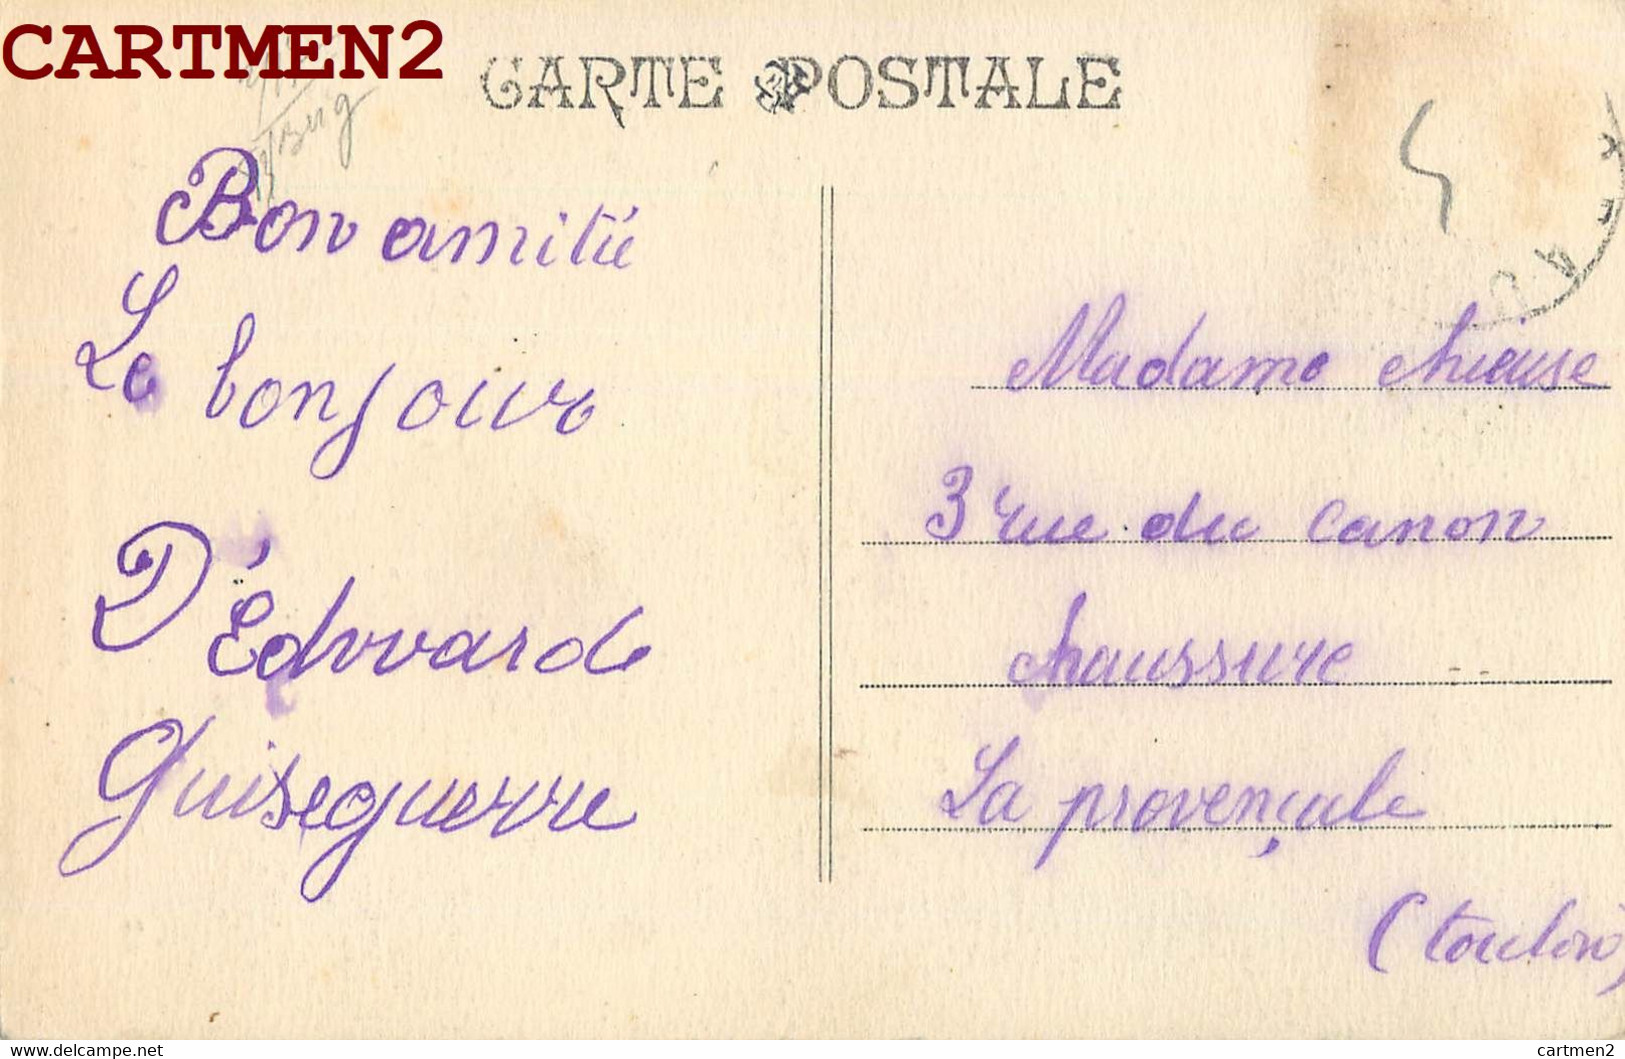 CARTMEN2
CARTE POSTALE
Bon amitié
Le bonjour
D'Edouard
Guiseguerre
Madame
3 rue du canon
chaussure
La provençale
(toulon)
cartmen2 delcampe.net
cartmen2